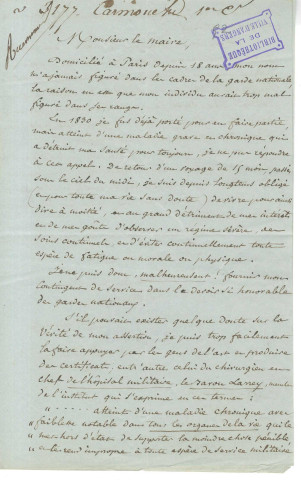 9177 Carmouche
BIBLIOTHÈQUE
DE LA
VILLE D'ANGERS
Monsieur le maire,
Domicilié à Paris depuis 18 ans mon nom
n'a jamais figuré dans les cadres de la garde nationale
la raison en est que mon individu aurait trop mal
figuré dans ses rangs.
En 1830 je fus déjà porté pour en faire partie
mais atteint d'une maladie grave et chronique qui
a détruit ma santé pour toujours, je ne pus répondre
à cet appel. De retour d'un voyage de 15 mois passés
sous le ciel du midi, je suis depuis longtems obligé
(et pour toute ma vie sans doute) de vivre, pour ainsi
dire à moitié, et au grand détriment de mes intérêts
et de mes gouts d'observer un régime sévère, des
soins continuels, et d'éviter continuellement toute
espèce de fatigue ou morale ou physique.
Je ne puis donc, malheureusement, fournir mon
contingent de service dans le devoir si honorable
de garde national.
S'il pouvait exister quelque doute sur la
vérité de mon assertion, je puis trop facilement
la faire appuyer par les gens de l'art et produire
des certificats, entr'autres celui du chirurgien en
chef de l'hopital militaire, le baron Larrey, membre
de l'institut qui s'exprime en ces termes :
" ........ atteint d'une maladie chronique avec
" faiblesse notable dans tous les organes de la vie qui le
" met hors d'état de supporter la moindre chose pénible,
" et le rend impropre à toute espèce de service militaire